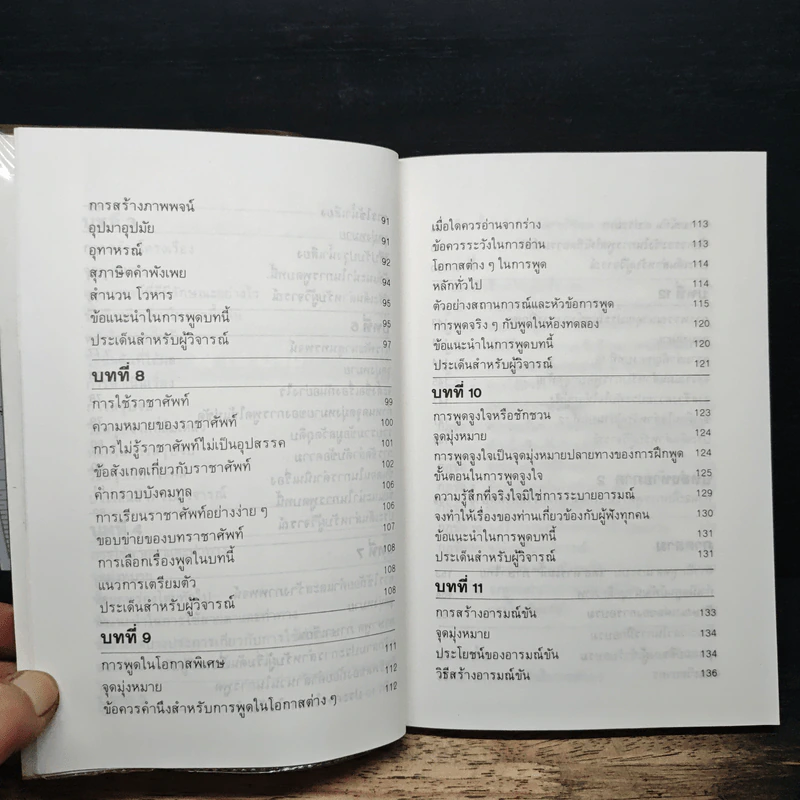 การสร้างภาพพจน์ 91
อุปมาอุปมัย 91
อุทาหรณ์ 92
สุภาษิตคำพังเพย 94
สำนวน โวหาร 95
ข้อแนะนำในการพูดบทนี้ 95
ประเด็นสำหรับผู้วิจารณ์ 97
บทที่ 8
การใช้ราชาศัพท์ 99
ความหมายของราชาศัพท์ 100
การไม่รู้ราชาศัพท์ไม่เป็นอุปสรรค 101
ข้อสังเกตเกี่ยวกับราชาศัพท์ 102
คำกราบบังคมทูล 106
การเรียนราชาศัพท์อย่างง่าย ๆ 106
ขอบข่ายของบทราชาศัพท์ 107
การเลือกเรื่องพูดในบทนี้ 108
แนวการเตรียมตัว 108
ประเด็นสำหรับผู้วิจารณ์ 108
บทที่ 9
การพูดในโอกาสพิเศษ 111
จุดมุ่งหมาย 112
ข้อควรคำนึงสำหรับการพูดในโอกาสต่าง ๆ 112
เมื่อใดควรอ่านจากร่าง 113
ข้อควรระวังในการอ่าน 113
โอกาสต่าง ๆ ในการพูด 114
หลักทั่วไป 114
ตัวอย่างสถานการณ์และหัวข้อการพูด 115
การพูดจริง ๆ กับพูดในห้องทดลอง 120
ข้อแนะนำในการพูดบทนี้ 120
ประเด็นสำหรับผู้วิจารณ์ 121
บทที่ 10
การพูดจูงใจหรือชักชวน 123
จุดมุ่งหมาย 124
การพูดจูงใจเป็นจุดมุ่งหมายปลายทางของการฝึกพูด 124
ขั้นตอนในการพูดจูงใจ 125
ความรู้สึกที่จริงใจมิใช่การระบายอารมณ์ 129
จงทำให้เรื่องของท่านเกี่ยวข้องกับผู้ฟังทุกคน 130
ข้อแนะนำในการพูดบทนี้ 131
ประเด็นสำหรับผู้วิจารณ์ 131
บทที่ 11
การสร้างอารมณ์ขัน 133
จุดมุ่งหมาย 134
ประโยชน์ของอารมณ์ขัน 134
วิธีสร้างอารมณ์ขัน 136